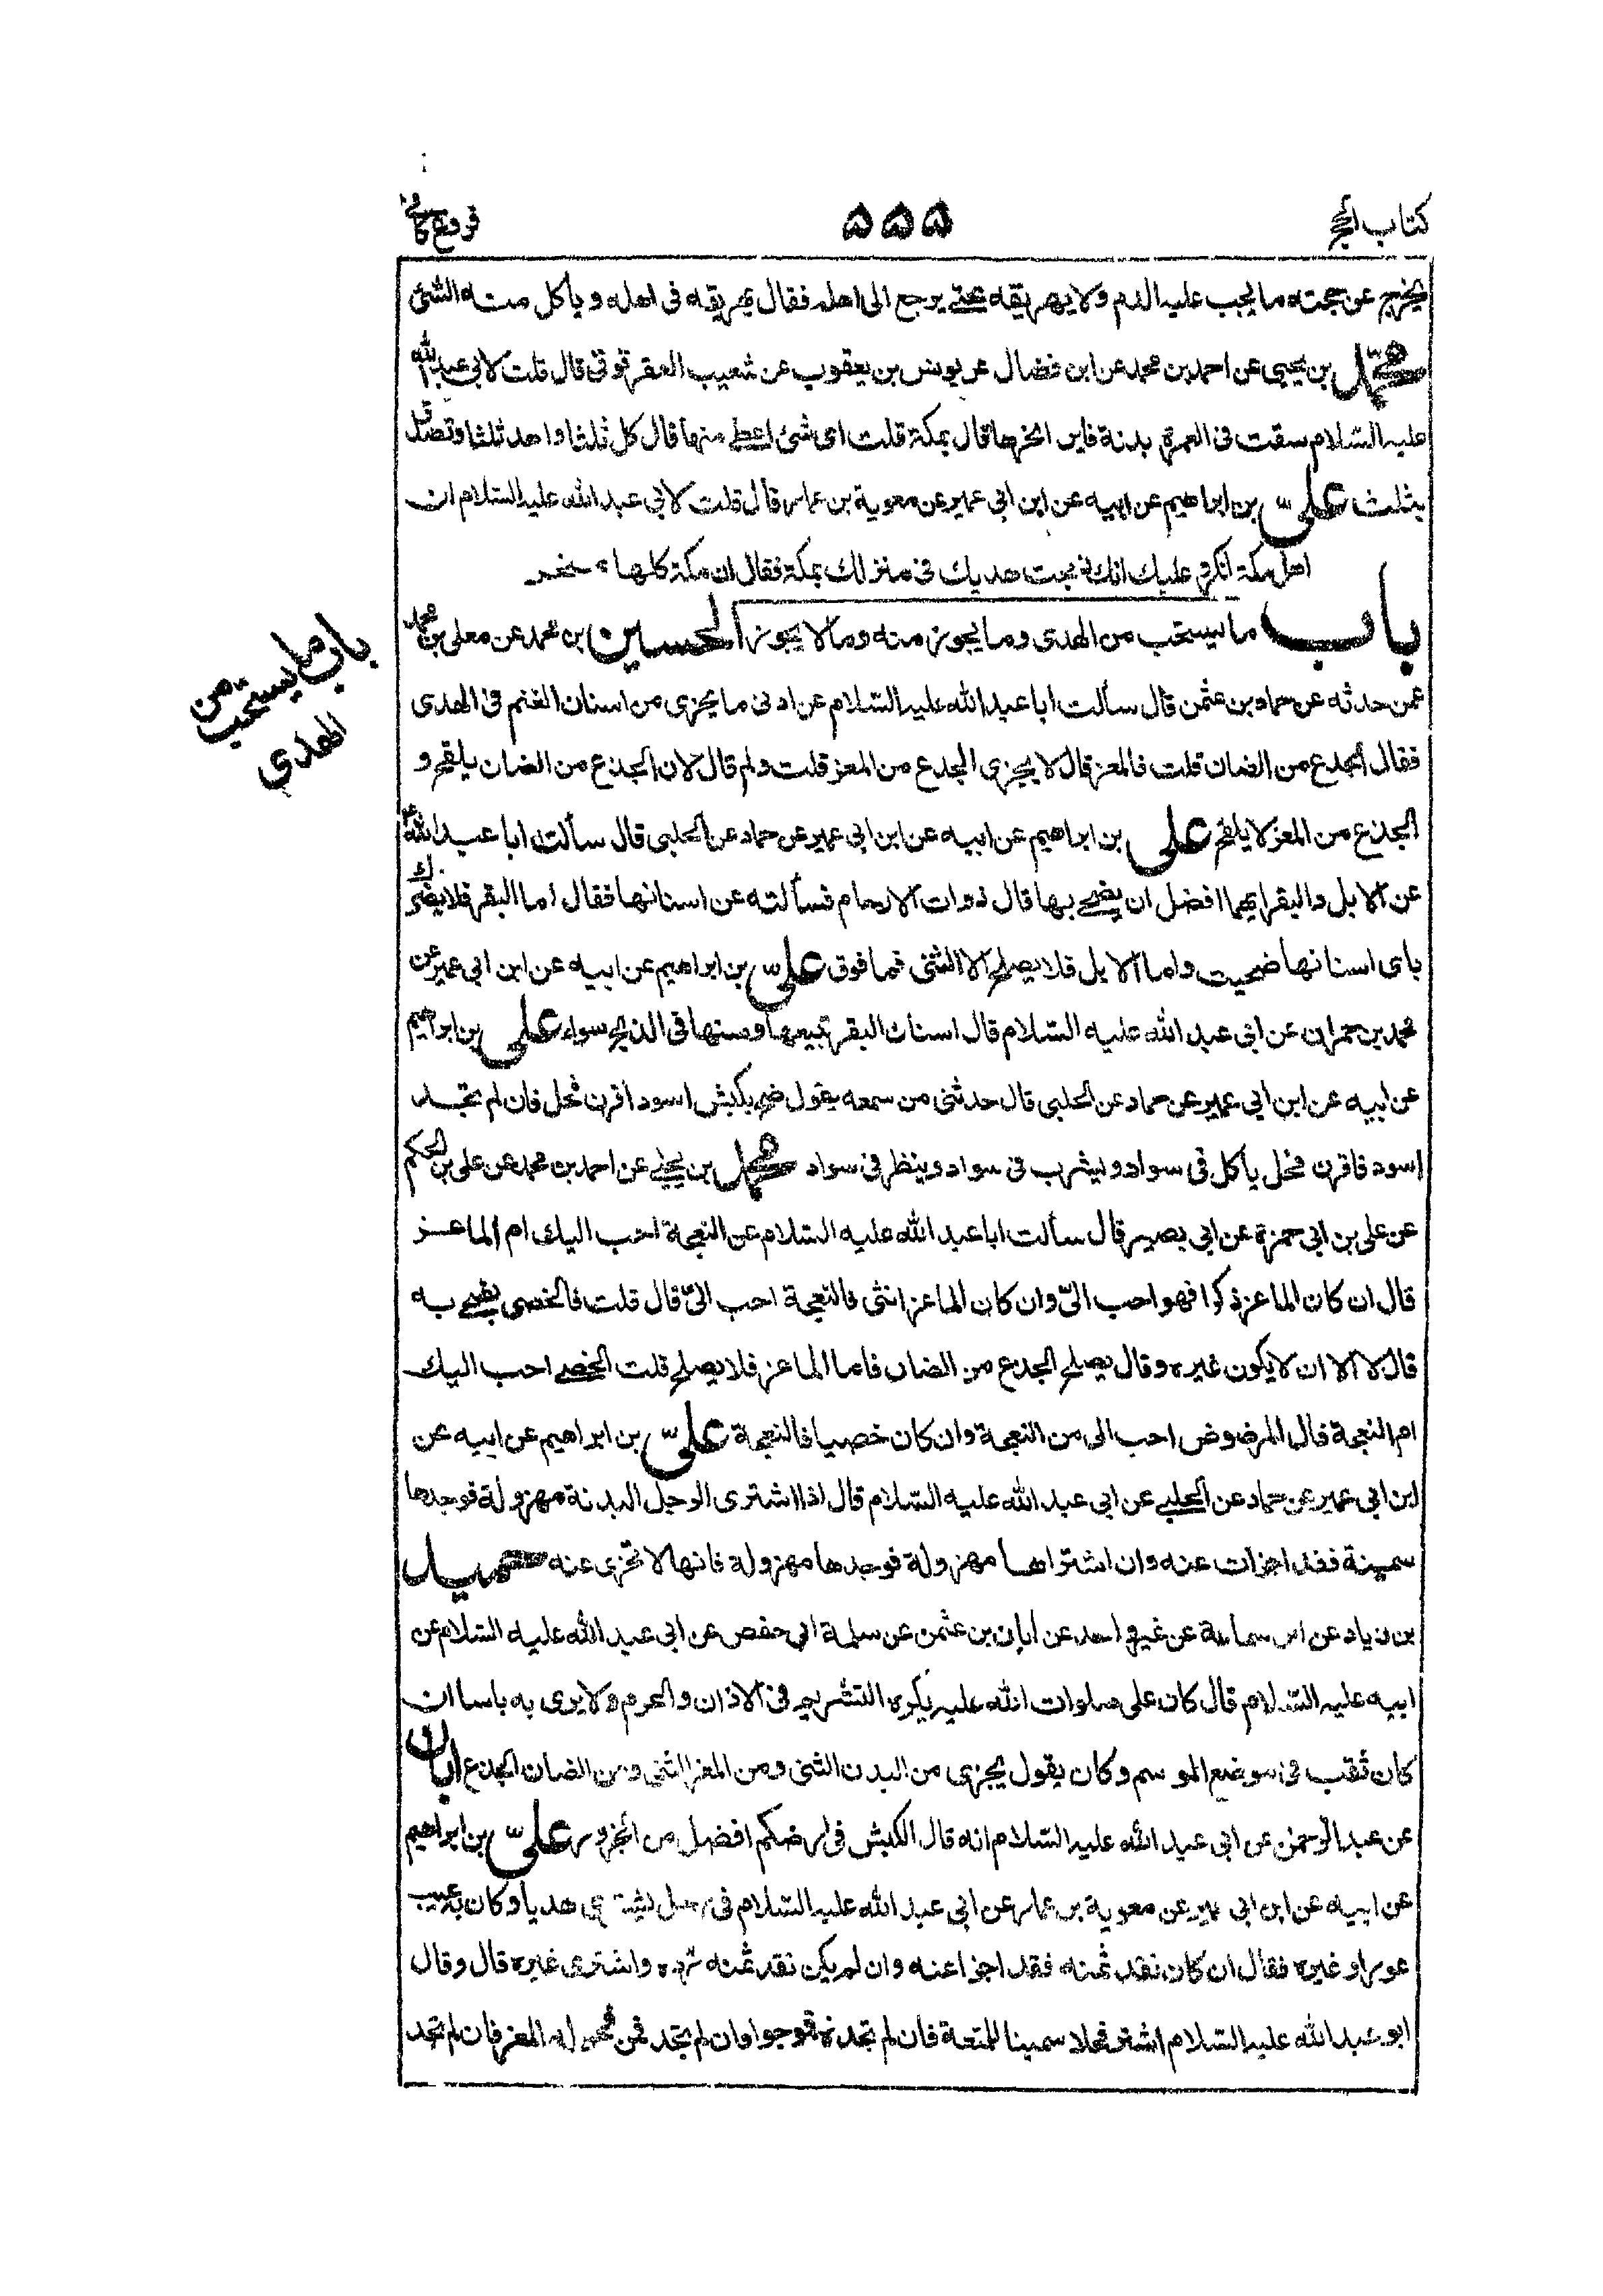 كتاب الحج
۵۵۵
فروع كافي
يخرج عن حجته ما يجب عليه الدم ولا يهريقه حتى يرجع الى اهله فقال يهريقه فى اهله و يأكل منه الشئ
محمد بن يحيى عن احمد بن محمد عن ابن فضال عن يونس بن يعقوب عن شعيب العقرقوقى قال قلت لابى عبد الله
عليه السلام سقت فى العمرة بدنة فاين انحرها قال بمكة قلت اى شئ اعطى منها قال كل ثلثا واهد ثلثا وتصدق
بثلث على بن ابراهيم عن ابيه عن ابن ابى عمير عن معوية بن عمار قال قلت لابى عبد الله عليه السلام ان
اهل مكة انكروا عليك انك ذبحت هديك فى منزلك بمكة فقال ان مكة كلها منحر
باب ما يستحب من الهدى وما يجوز منه وما لا يجوز الحسين بن محمد عن معلى بن محمد
باب ما يستحب من
الهدى
عمن حدثه عن حماد بن عثمن قال سألت ابا عبد الله عليه السلام عن ادنى ما يجزى من اسنان الغنم فى الهدى
فقال الجذع من الضان قلت فالمعز قال لا يجزى الجذع من المعز قلت ولم قال لان الجذع من الضان يلقح و
الجذع من المعز لا يلقح على بن ابراهيم عن ابيه عن ابن ابى عمير عن حماد عن الحلبى قال سألت ابا عبد الله ع
عن الابل والبقر ايهما افضل ان يضحى بها قال ذوات الارحام فسألته عن اسنانها فقال اما البقر فلا يضرك
باى اسنانها ضحيت واما الابل فلا يصلح الا الثنى فما فوق على بن ابراهيم عن ابيه عن ابن ابى عمير عن
محمد بن حمران عن ابى عبد الله عليه السلام قال اسنان البقر تبيعها ومسنها فى الذبح سواء على بن ابراهيم
عن ابيه عن ابن ابى عمير عن حماد عن الحلبى قال حدثنى من سمعه يقول ضح بكبش اسود اقرن فحل فان لم تجد
اسود فاقرن فحل يأكل فى سواد ويشرب فى سواد وينظر فى سواد محمد بن يحيى عن احمد بن محمد عن على بن الحكم
عن على بن ابى حمزة عن ابى بصير قال سألت ابا عبد الله عليه السلام عن النعجة احب اليك ام الماعز
قال ان كان الماعز ذكرا فهو احب الىّ وان كان الماعز انثى فالنعجة احب الىّ قال قلت فالخصى يضحى به
قال لا الا ان لا يكون غيره وقال يصلح الجذع من الضان فاما الماعز فلا يصلح قلت الخصى احب اليك
ام النعجة قال المرضوض احب الى من النعجة وان كان خصيا فالنعجة على بن ابراهيم عن ابيه عن
ابن ابى عمير عن حماد عن الحلبى عن ابى عبد الله عليه السلام قال اذا اشترى الرجل البدنة مهزولة فوجدها
سمينة فقد اجزات عنه وان اشتراها مهزولة فوجدها مهزولة فانها لا تجزى عنه حميد
بن زياد عن ابن سماعة عن غير واحد عن ابان بن عثمن عن سلمة ابى حفص عن ابى عبد الله عليه السلام عن
ابيه عليه السلام قال كان على صلوات الله عليه يكره التشريم فى الاذان والخرم ولا يرى به باسا ان
كان ثقب فى موضع الموسم وكان يقول يجزى من البدن الثنى ومن المعز الثنى ومن الضان الجذع ابان
عن عبد الرحمن عن ابى عبد الله عليه السلام انه قال الكبش فى ارضكم افضل من الجزور على بن ابراهيم
عن ابيه عن ابن ابى عمير عن معوية بن عمار عن ابى عبد الله عليه السلام فى رجل يشترى هديا وكان به عيب
عور او غيره فقال ان كان نقد ثمنه فقد اجزا عنه وان لم يكن نقد ثمنه رده واشترى غيره قال وقال
ابو عبد الله عليه السلام اشتر فحلا سمينا للمتعة فان لم تجد فموجوا وان لم تجد فمن فحولة المعز فان لم تجد